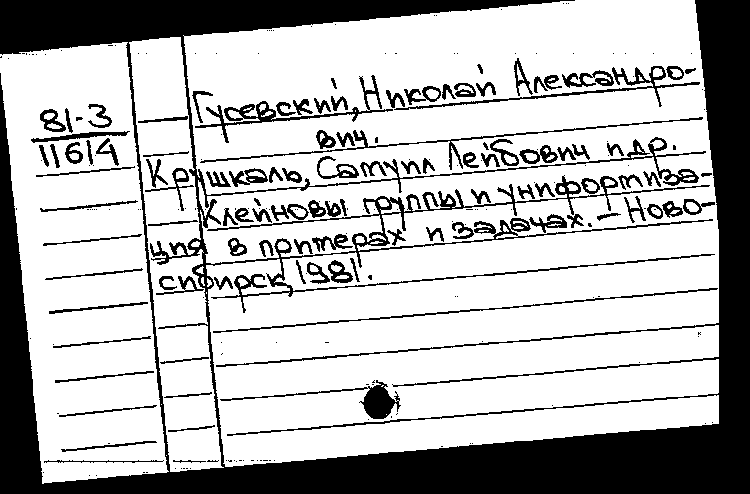 81-3
11614
Гусевский, Николай Александро-
вич.
Крушкаль, Самуил Лейбович и др.
Клейновы группы и униформиза-
ция в примерах и задачах. — Ново-
сибирск, 1981.